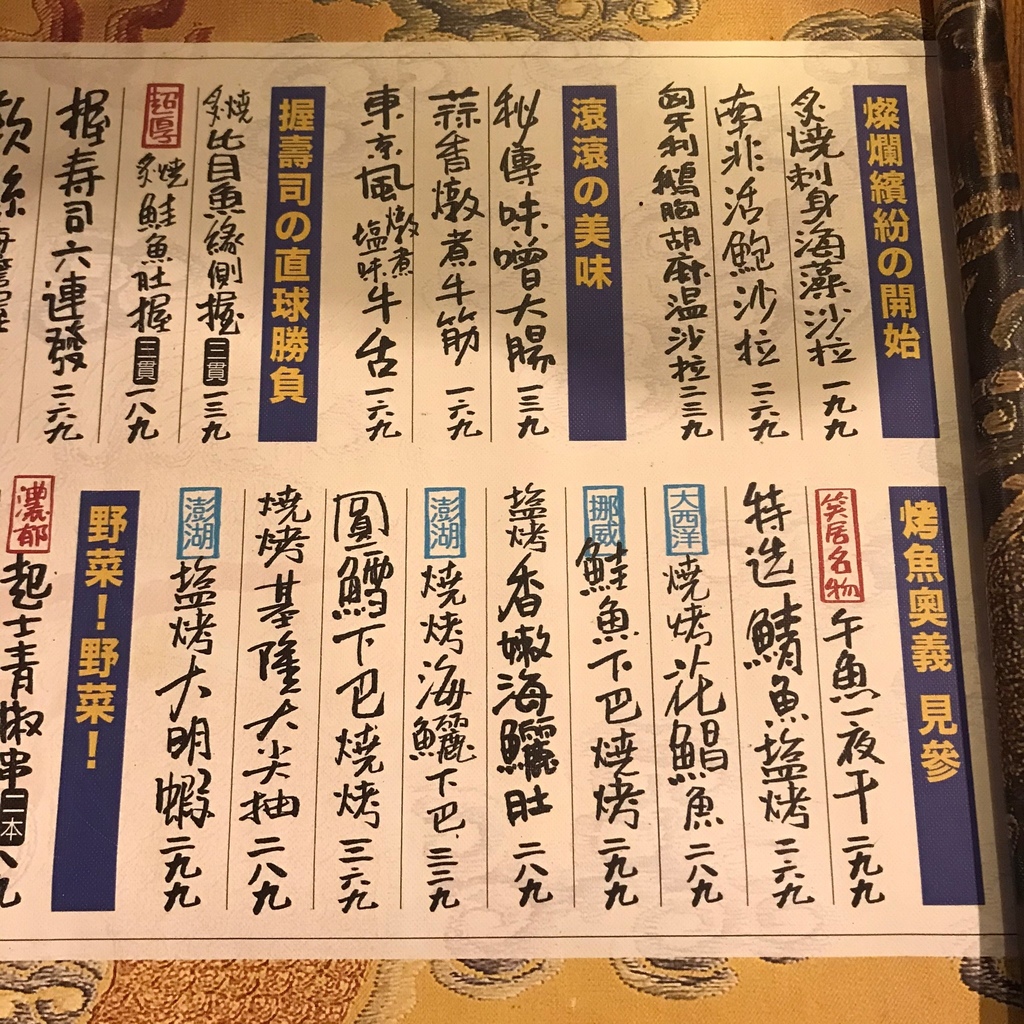 燦爛繽紛の開始
炙燒刺身海藻沙拉 一九九
南非活鮑沙拉 二六九
匈牙利鵝胸胡麻温沙拉 二三九
滾滾の美味
秘傳味噌大腸 一三九
蒜香燉煮牛筋 一六九
東京風燉煮塩味牛舌 一六九
握壽司の直球勝負
炙燒比目魚緣側握 三貫 一三九
超厚 炙燒鮭魚肚握 三貫 一八九
握寿司六連發 二六九
烤魚奧義 見參
笑居名物 午魚一夜干 二九九
特选鯖魚塩烤 二六九
大西洋 燒烤花鯧魚 二八九
挪威 鮭魚下巴燒烤 二九九
塩烤香嫩海鱺肚 二八九
澎湖 燒烤海鱺下巴 三三九
圓鱈下巴燒烤 三六九
燒烤基隆大尖抽 二八九
澎湖 塩烤大明蝦 二九九
野菜！野菜！
濃郁 起士青椒串 二本 八九